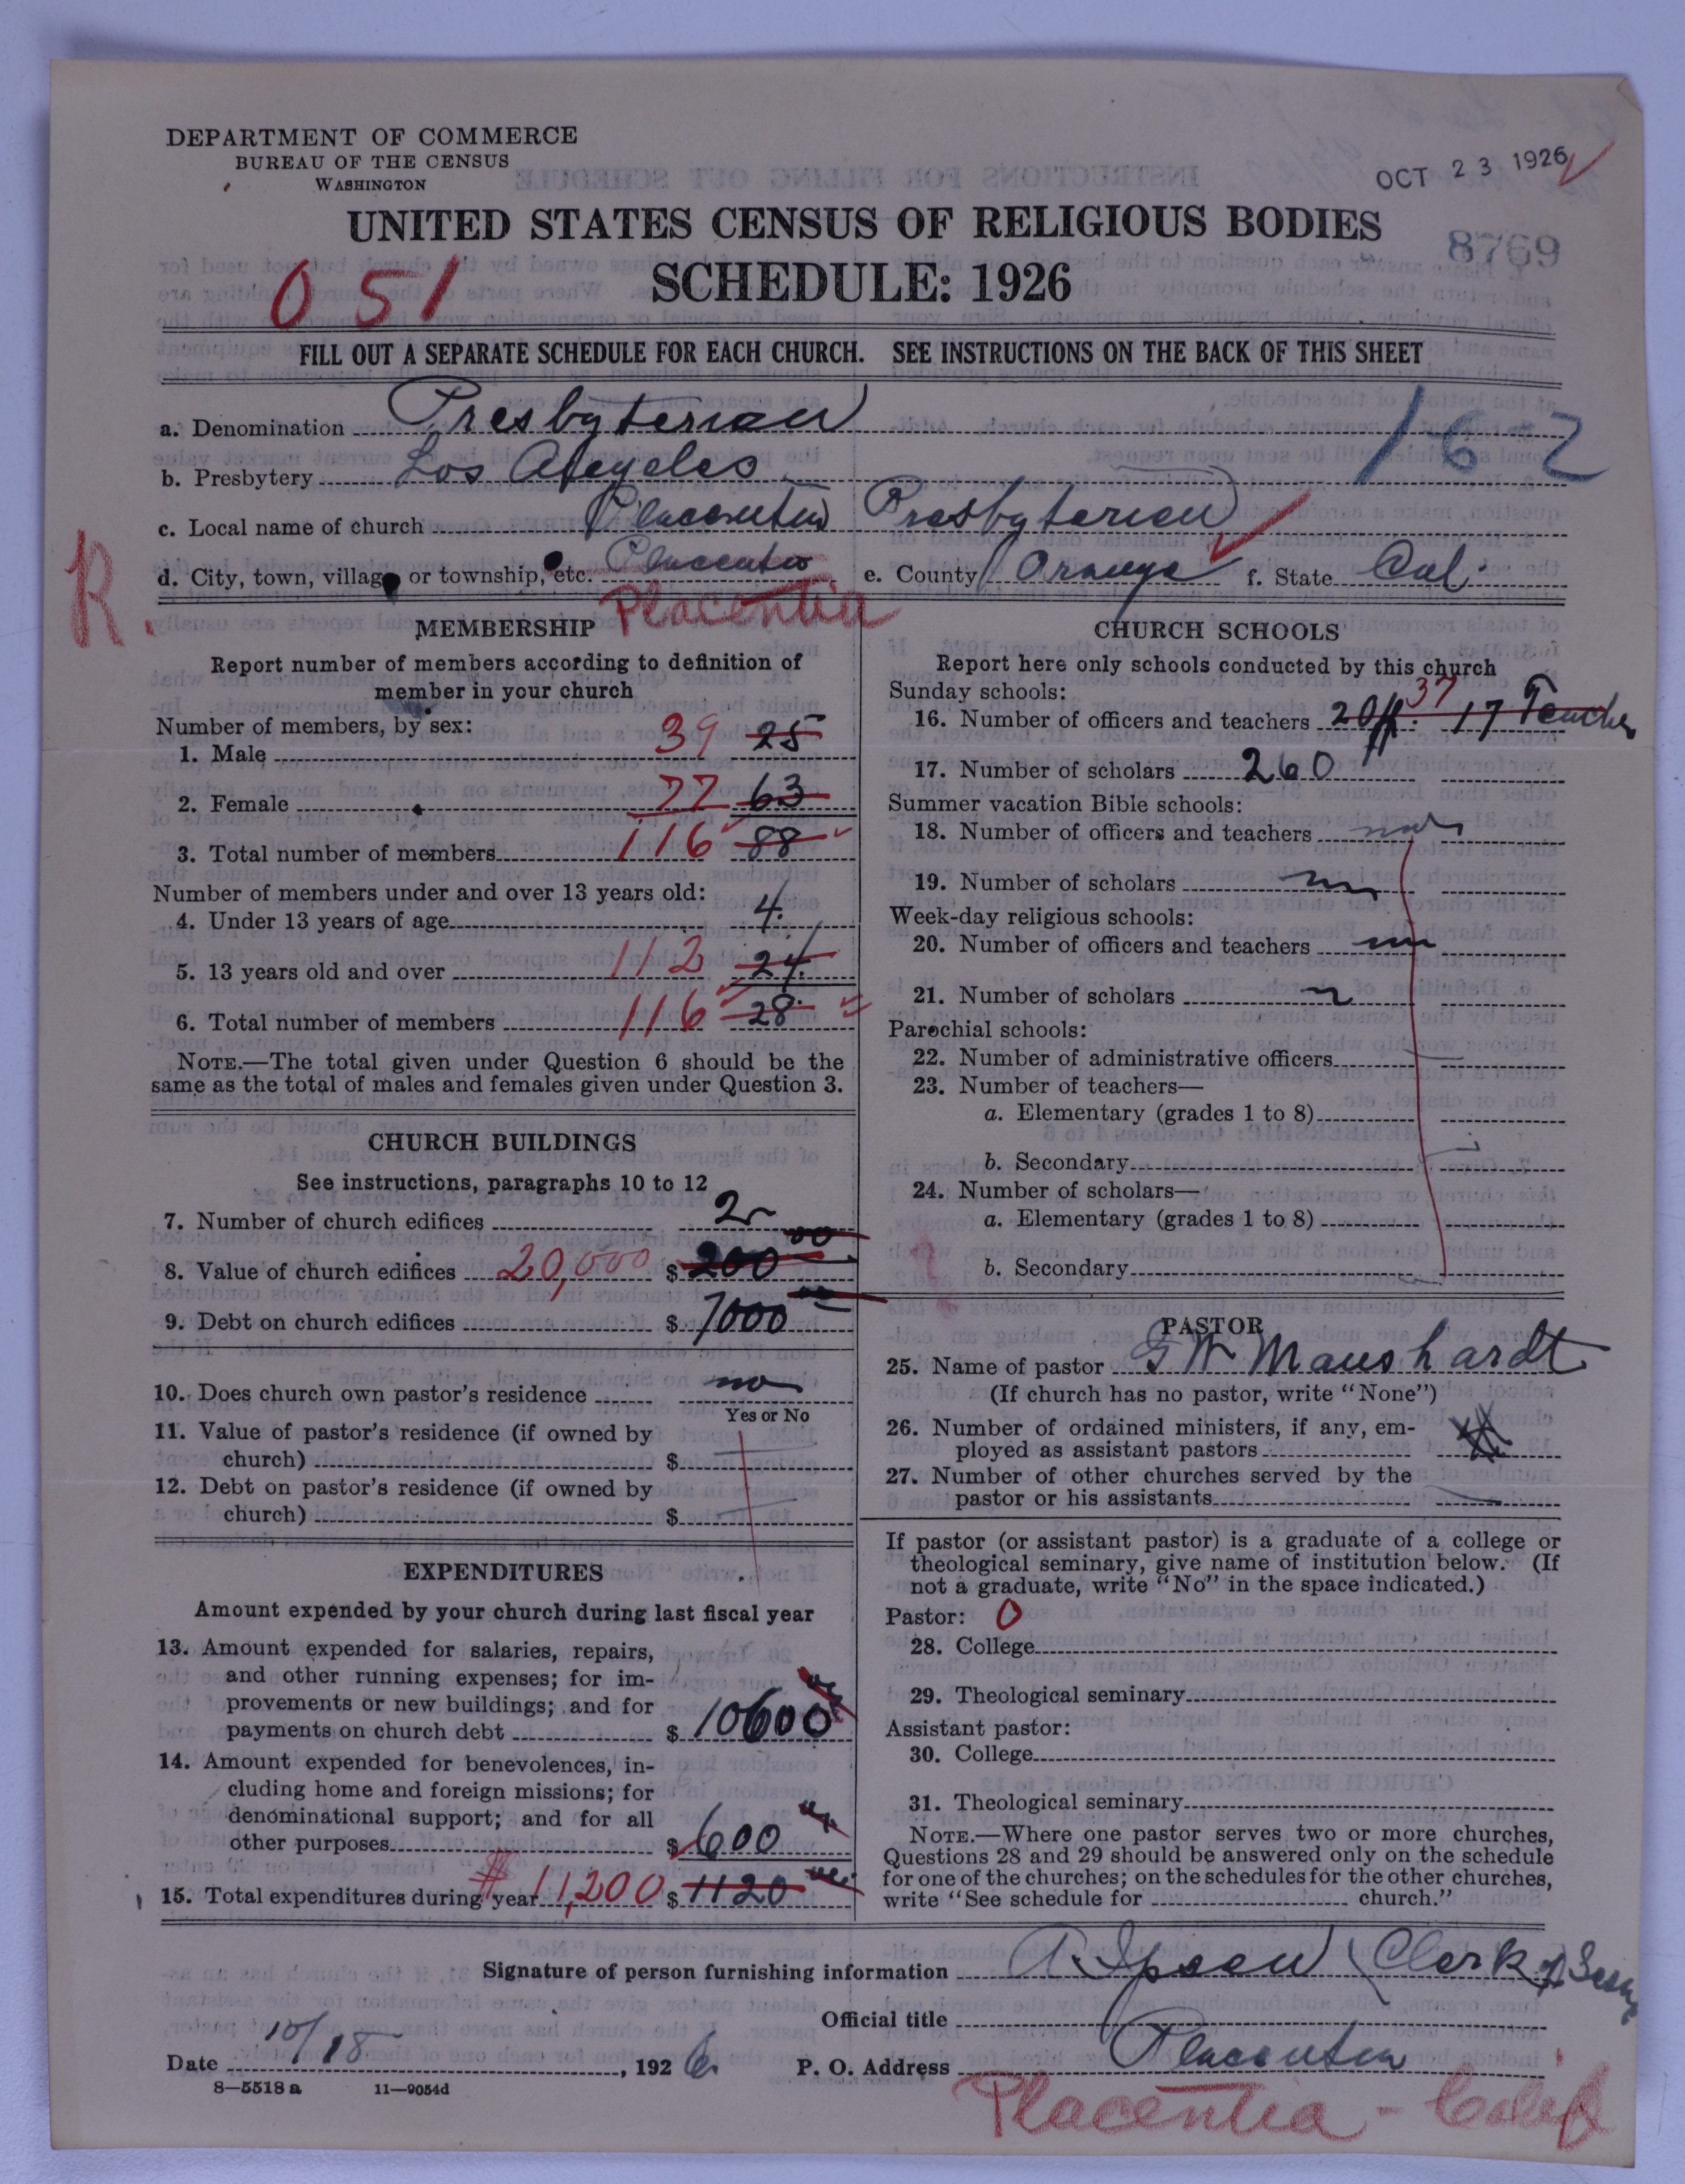 DEPARTMENT OF COMMERCE
BUREAU OF THE CENSUS
WASHINGTON
OCT 23 1926
UNITED STATES CENSUS OF RELIGIOUS BODIES
8769
051
SCHEDULE: 1926
FILL OUT A SEPARATE SCHEDULE FOR EACH CHURCH. SEE INSTRUCTIONS ON THE BACK OF THIS SHEET
a. Denomination Presbyterian
162
b. Presbytery Los Angeles
c. Local name of church Placentia Presbyterian
d. City, town, village or township, etc. Placentia e. County Orange f. State Cal.
R. Placentia
MEMBERSHIP
Report number of members according to definition of
member in your church
Number of members, by sex:
1. Male 39 25
2. Female 77 63
3. Total number of members 116 88
Number of members under and over 13 years old:
4. Under 13 years of age 4.
5. 13 years old and over 112 24.
6. Total number of members 116 28.
NOTE.—The total given under Question 6 should be the
same as the total of males and females given under Question 3.
CHURCH BUILDINGS
See instructions, paragraphs 10 to 12
7. Number of church edifices 2
8. Value of church edifices 20,000 $ 200 00
9. Debt on church edifices $ 7000
10. Does church own pastor's residence no
Yes or No
11. Value of pastor's residence (if owned by
church) $
12. Debt on pastor's residence (if owned by
church) $
EXPENDITURES
Amount expended by your church during last fiscal year
13. Amount expended for salaries, repairs,
and other running expenses; for im-
provements or new buildings; and for
payments on church debt $ 10600
14. Amount expended for benevolences, in-
cluding home and foreign missions; for
denominational support; and for all
other purposes $ 600
15. Total expenditures during year $ 11,200 $ 1120
CHURCH SCHOOLS
Report here only schools conducted by this church
Sunday schools:
37
16. Number of officers and teachers 2 Off. 17 Teacher
17. Number of scholars 260
Summer vacation Bible schools:
18. Number of officers and teachers
19. Number of scholars
Week-day religious schools:
20. Number of officers and teachers
21. Number of scholars
Parochial schools:
22. Number of administrative officers
23. Number of teachers—
a. Elementary (grades 1 to 8)
b. Secondary
24. Number of scholars—
a. Elementary (grades 1 to 8)
b. Secondary
PASTOR
25. Name of pastor G W Maushardt
(If church has no pastor, write "None")
26. Number of ordained ministers, if any, em-
ployed as assistant pastors
27. Number of other churches served by the
pastor or his assistants
If pastor (or assistant pastor) is a graduate of a college or
theological seminary, give name of institution below. (If
not a graduate, write "No" in the space indicated.)
Pastor: 0
28. College
29. Theological seminary
Assistant pastor:
30. College
31. Theological seminary
NOTE.—Where one pastor serves two or more churches,
Questions 28 and 29 should be answered only on the schedule
for one of the churches; on the schedules for the other churches,
write "See schedule for church."
Signature of person furnishing information Clerk
Official title
Date 10/18, 1926 P. O. Address Placentia
8—5518a 11—9054d
Placentia - Calif